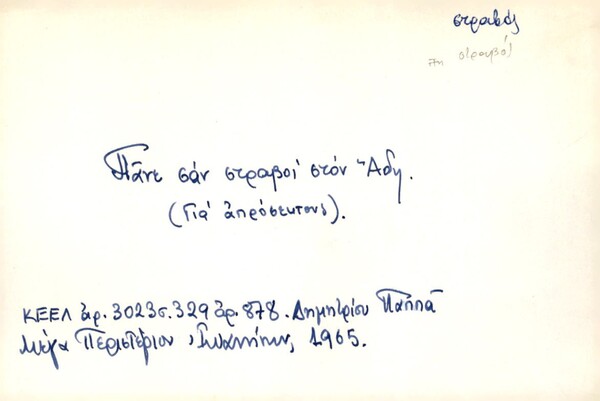 στραβός
στραβοί
Πᾶνε σάν στραβοί στόν Ἅδη.
(Γιά ἀπρόσεκτους).
ΚΕΕΛ ἀρ. 3023 σ. 329 ἀρ. 878. Δημητρίου Παππᾶ
Μέγα Περιστέριον, Ἰωαννίνων, 1965.